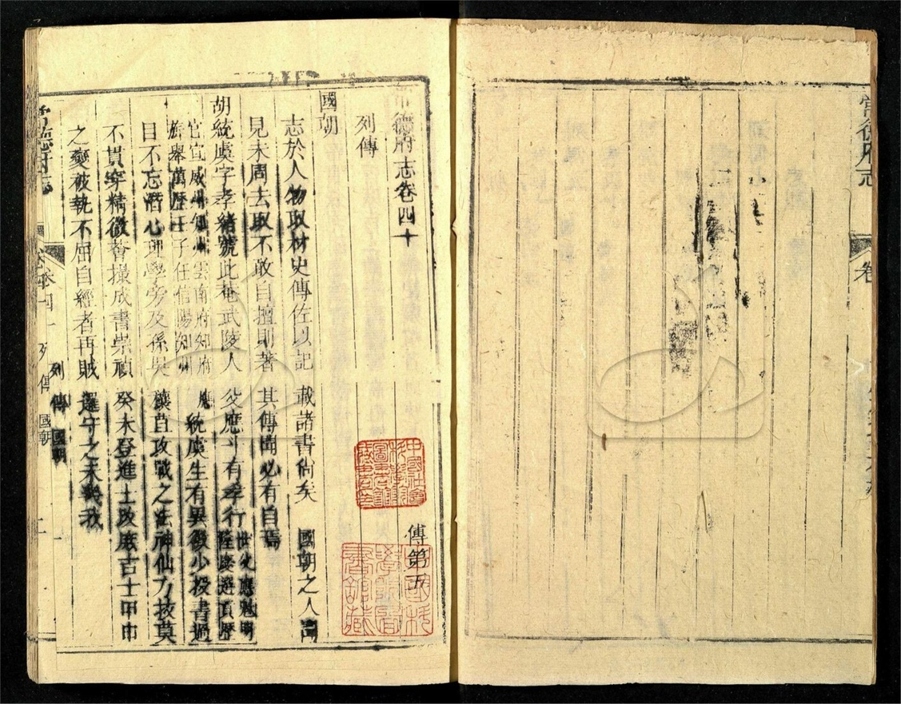 常德府志
卷
常德府志卷四十
傳第五
列傳
國朝
志於人物取材史傳佐以記載諸書尚矣 國朝之人聞
見未周去取不敢自擅則著其傳尚必有自焉
胡統虞字孝緒號此菴武陵人父應斗有孝行世父應魁明隆慶選貢歷
官宜知州雲南府知府應舉萬歷壬子任信陽知州統虞生有異徵少授書過
目不忘潛心理學旁及孫吳穰苴攻戰之法神仙方技莫
不貫穿精微薈撮成書崇禎癸未登進士改庶吉士甲申
之變被執不屈自經者再賊邏守之未
常德府志
列傳
國朝
列傳
國朝